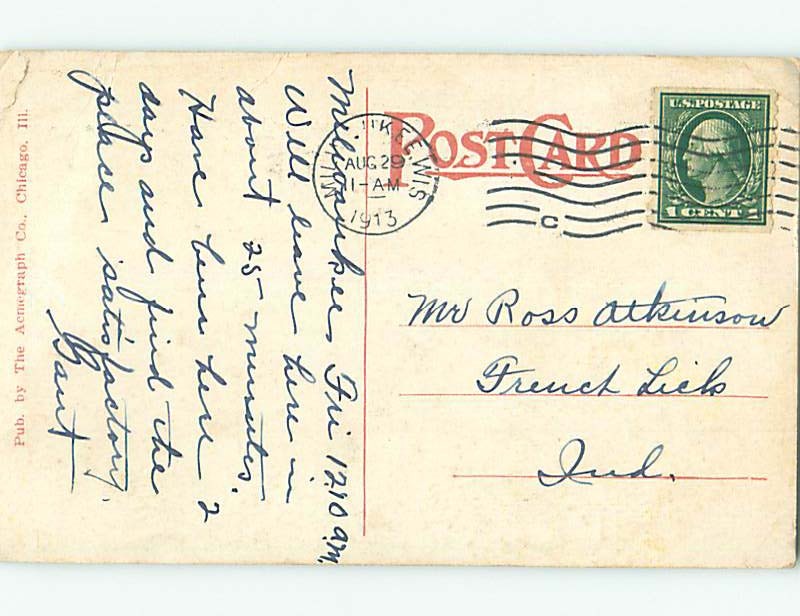 Milwaukee, Fri 12.10 a.m.
Will leave here in
about 25 minutes.
Have been here 2
days and find the
place satisfactory.
Gant
Pub. by The Acmegraph Co., Chicago, Ill.
POST CARD
MILW UKEE, WIS
AUG 29
1-AM
1913
C
U.S. POSTAGE
1 CENT 1
Mr Ross Atkinson
French Lick
Ind.